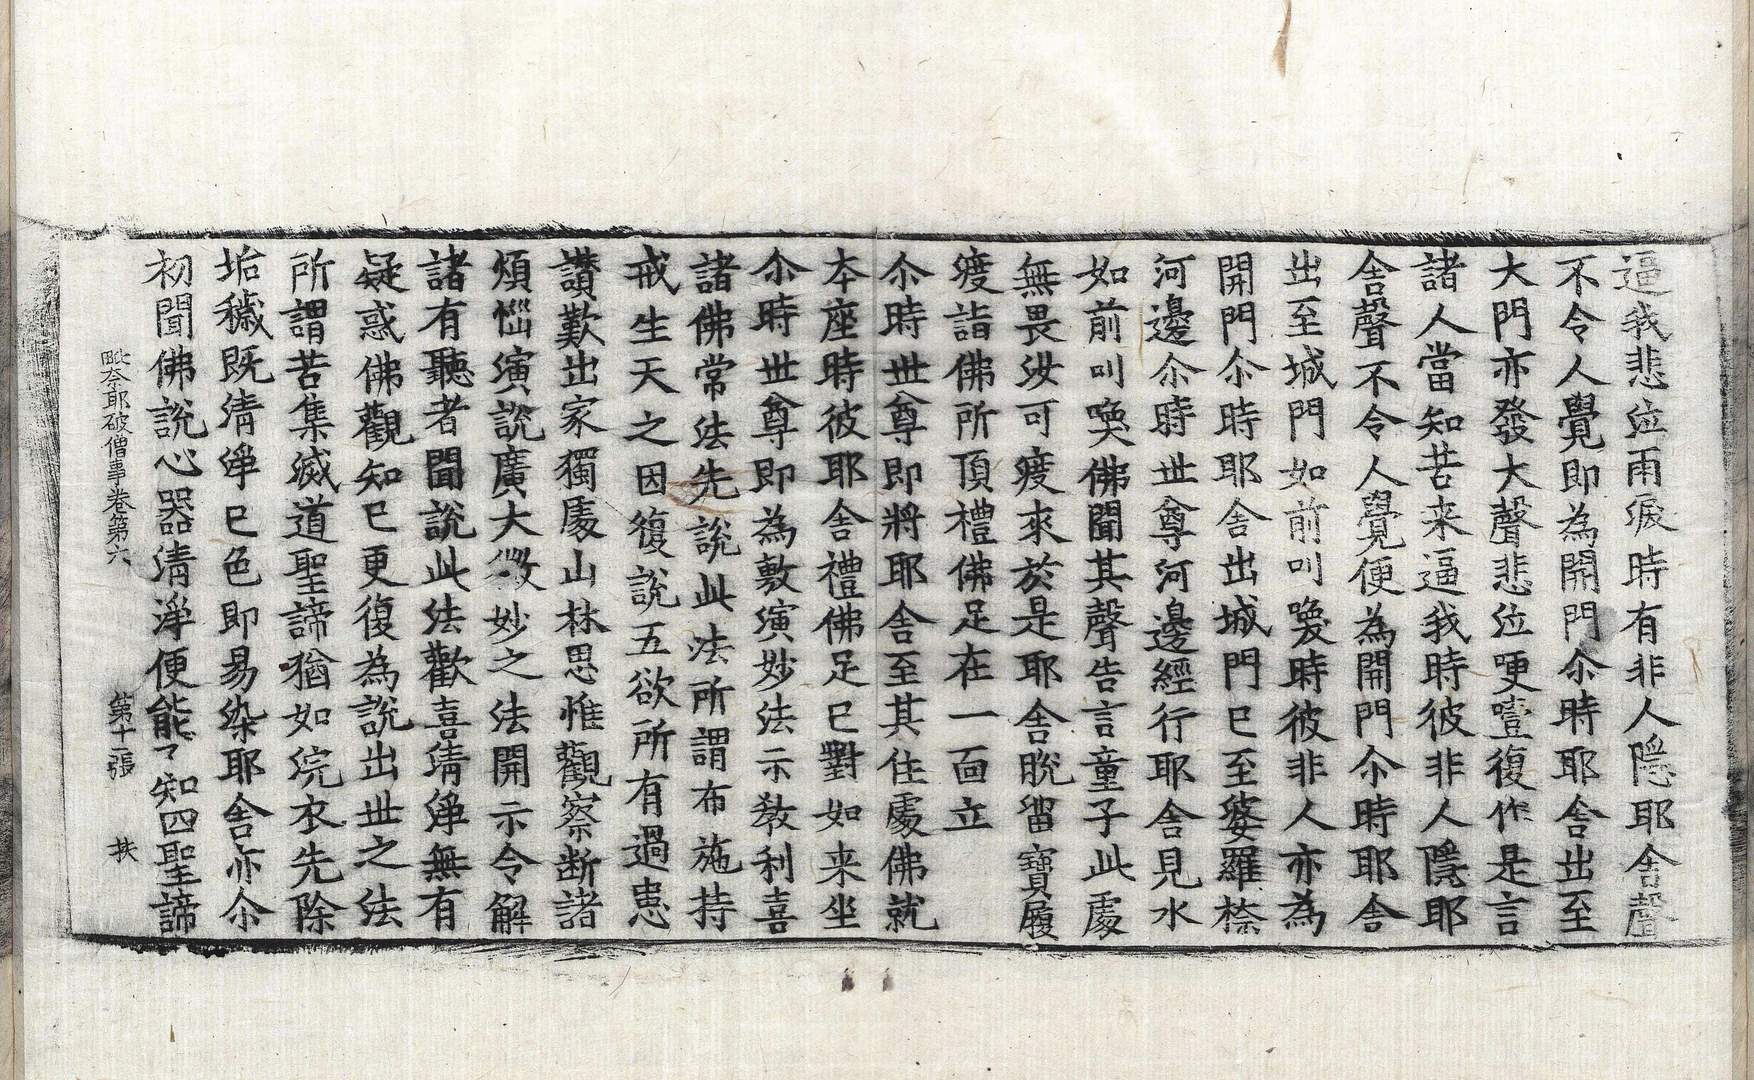 逼我悲泣雨淚時有非人隱耶舍聲
不令人覺即為開門尒時耶舍出至
大門亦發大聲悲泣哽噎復作是言
諸人當知苦来逼我時彼非人隱耶
舍聲不令人覺便為開門尒時耶舍
出至城門如前叫喚時彼非人亦為
開門尒時耶舍出城門已至婆羅㮈
河邊尒時世尊河邊經行耶舍見水
如前叫喚佛聞其聲告言童子此處
無畏汝可疲來於是耶舍脫留寶履
疲詣佛所頂禮佛足在一面立
尒時世尊即將耶舍至其住處佛就
本座時彼耶舍禮佛足已對如来坐
尒時世尊即為敷演妙法示教利喜
諸佛常法先說此法所謂布施持
戒生天之因復說五欲所有過患
讚歎出家獨處山林思惟觀察断諸
煩惱演說廣大微妙之法開示令解
諸有聽者聞說此法歡喜清淨無有
疑惑佛觀知已更復為說出世之法
所謂苦集滅道聖諦猶如浣衣先除
垢穢既清淨已色即易染耶舍亦尒
初聞佛說心器清淨便能了知四聖諦
毗奈耶破僧事卷第六 第十一張 扶